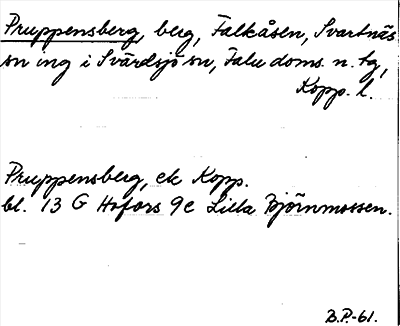 Pruppensberg, berg, Falkåsen, Svartnäs
sn ing i Svärdsjö sn, Falu doms. n. tg,
Kopp. l.
Pruppensberg, ek Kopp.
bl. 13 G Hofors 9c Lilla Björnmossen.
B.P.-61.